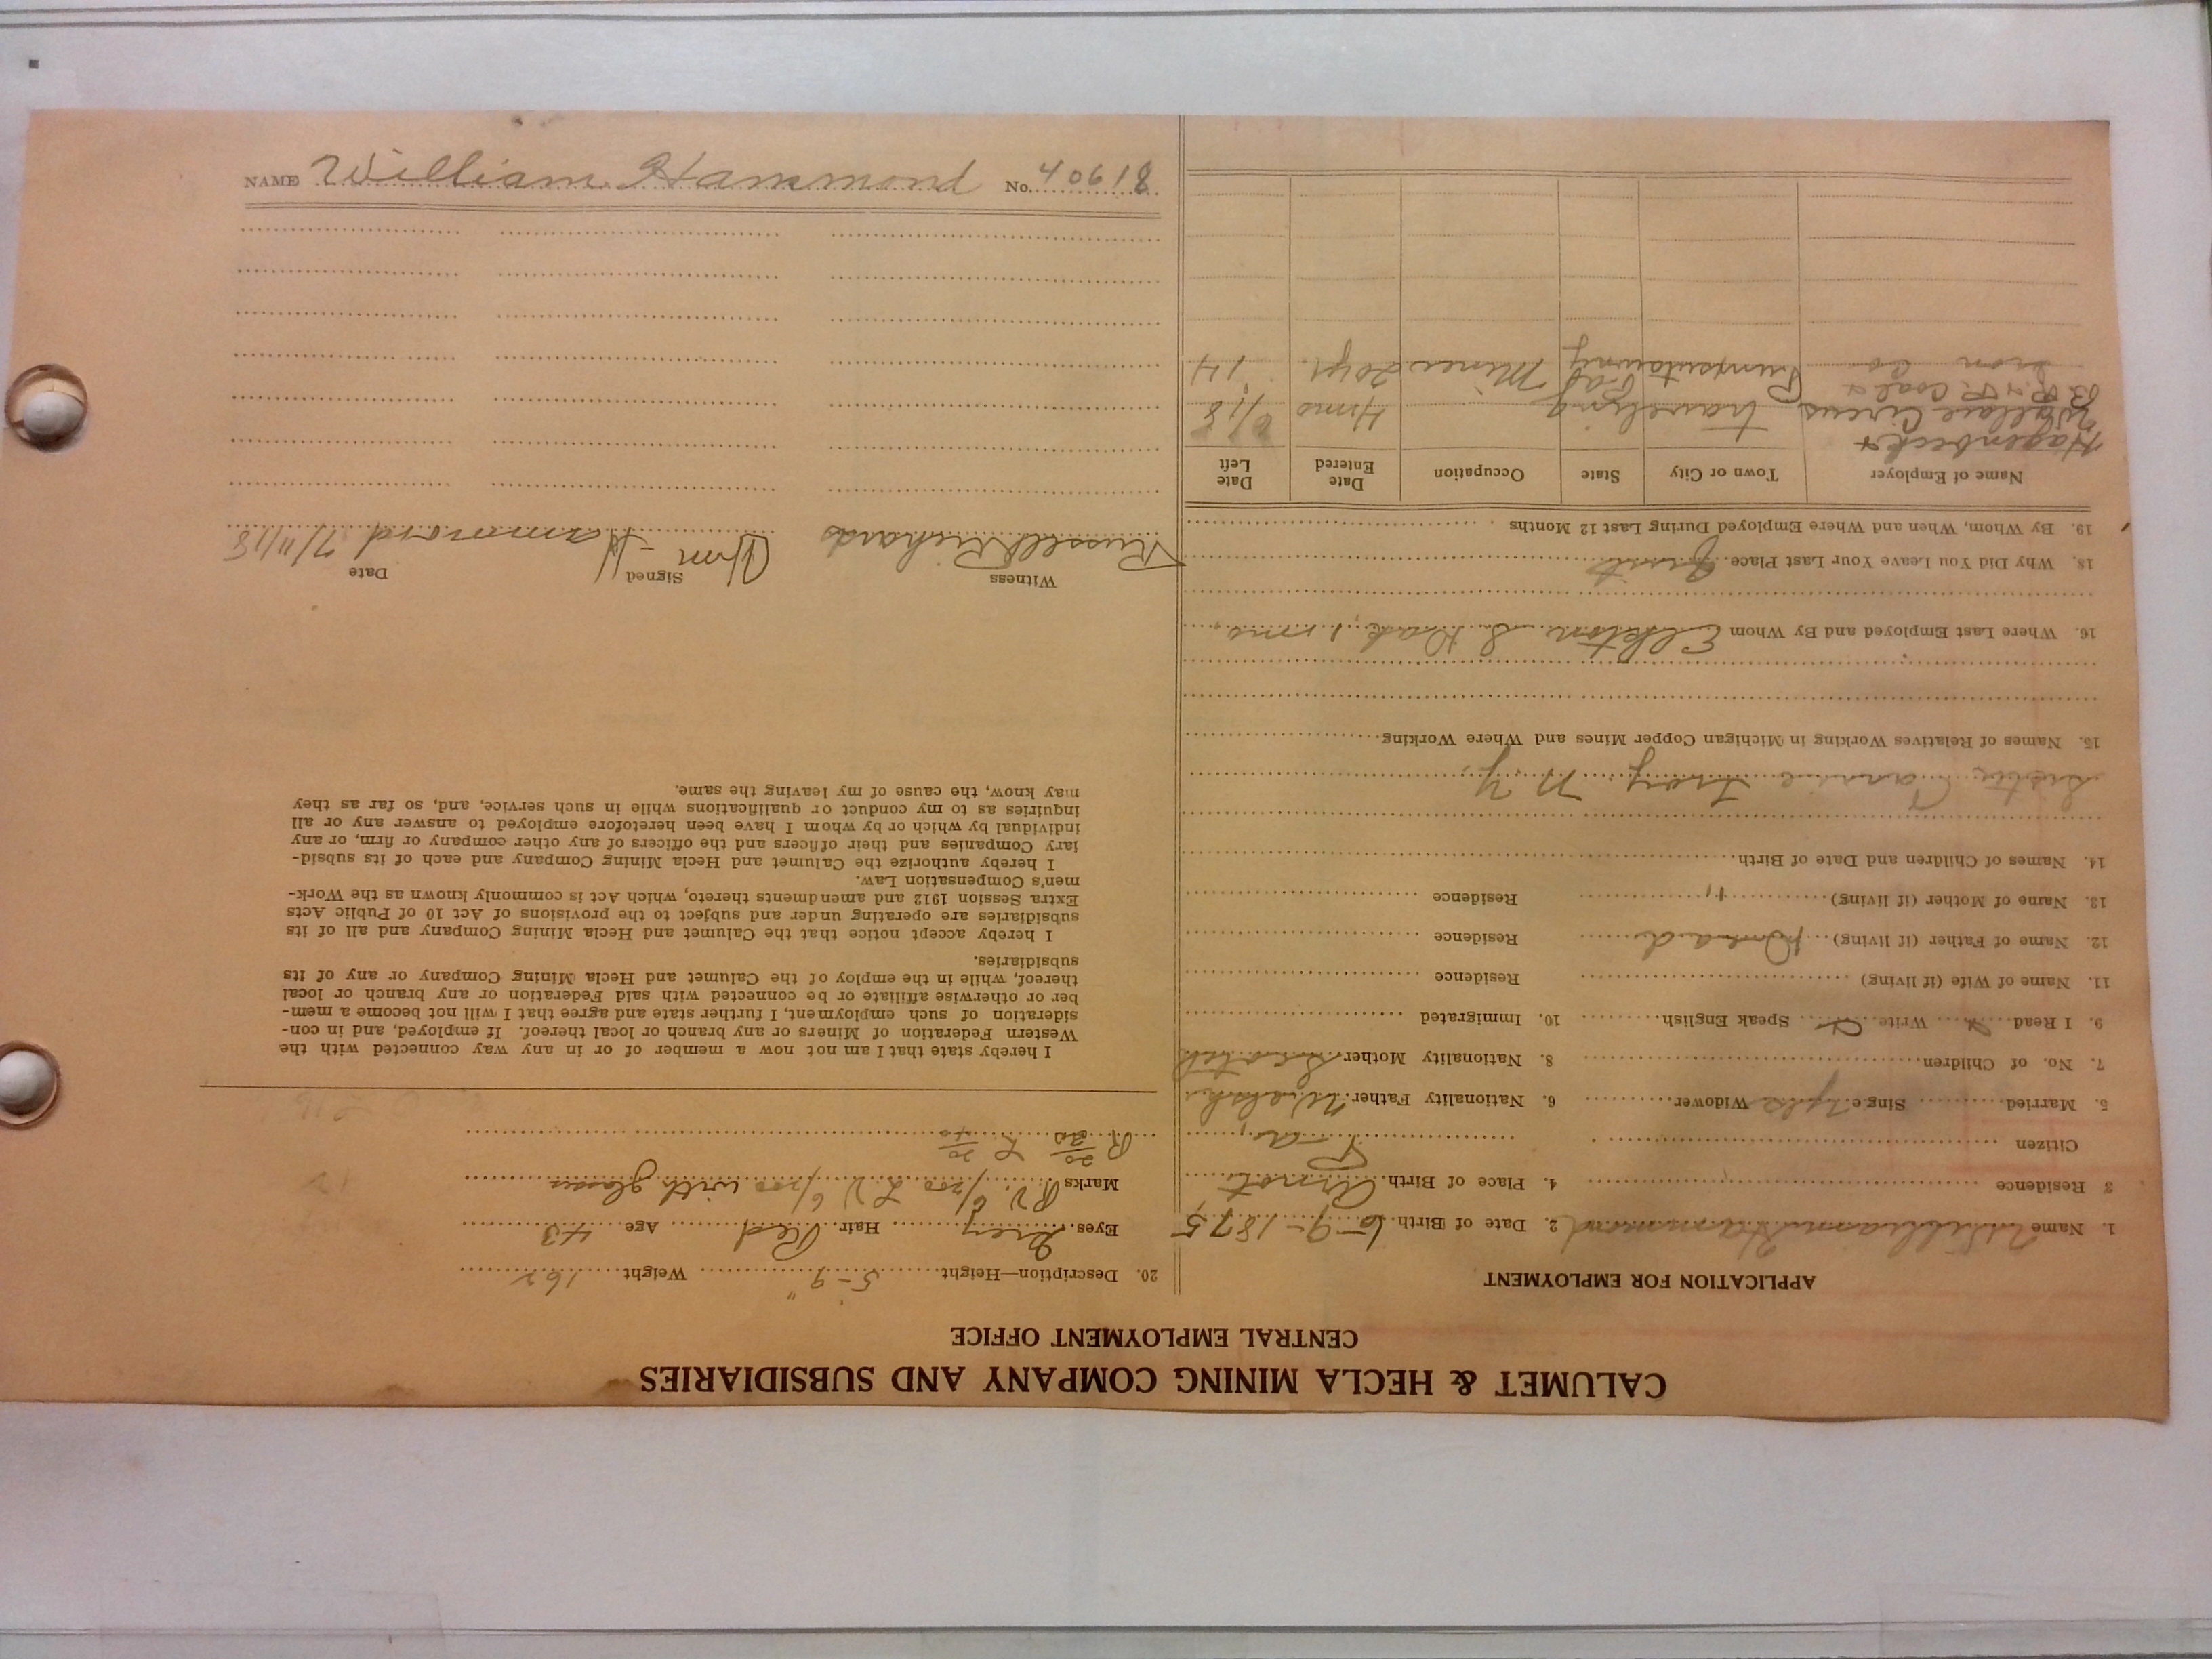 CALUMET & HECLA MINING COMPANY AND SUBSIDIARIES
CENTRAL EMPLOYMENT OFFICE
APPLICATION FOR EMPLOYMENT
1. Name William Hammond 2. Date of Birth 6-9-1875
3 Residence 4. Place of Birth Arnot
Citizen Pa.
5. Married Single yes Widower 6. Nationality Father Welsh
7. No. of Children 8. Nationality Mother Scotch
9. I Read Write Speak English 10. Immigrated
11. Name of Wife (if living) Residence
12. Name of Father (if living) Dead Residence
13. Name of Mother (if living) " Residence
14. Names of Children and Date of Birth
Sister Carrie Troy N. Y.
15. Names of Relatives Working in Michigan Copper Mines and Where Working
16. Where Last Employed and By Whom Elkton S. Dak, 1 mo,
18. Why Did You Leave Your Last Place. Quit
19. By Whom, When and Where Employed During Last 12 Months
Name of Employer Town or City State Occupation Date Entered Date Left
Hagenbeck &
Wallace Circus traveling 4mo 6/18
B. R. & P. Coal &
Iron Co Punxsutawney Pa Miner 20 yr. 14
20. Description—Height 5-9" Weight 162
Eyes Grey Hair Red Age 43
Marks R V. 6/200 L V 6/200 with glasses
R 20/20 L 20/40
I hereby state that I am not now a member of or in any way connected with the
Western Federation of Miners or any branch or local thereof. If employed, and in con-
sideration of such employment, I further state and agree that I will not become a mem-
ber or otherwise affiliate or be connected with said Federation or any branch or local
thereof, while in the employ of the Calumet and Hecla Mining Company or any of its
subsidiaries.
I hereby accept notice that the Calumet and Hecla Mining Company and all of its
subsidiaries are operating under and subject to the provisions of Act 10 of Public Acts
Extra Session 1912 and amendments thereto, which Act is commonly known as the Work-
men's Compensation Law.
I hereby authorize the Calumet and Hecla Mining Company and each of its subsid-
iary Companies and their officers and the officers of any other company or firm, or any
individual by which or by whom I have been heretofore employed to answer any or all
inquiries as to my conduct or qualifications while in such service, and, so far as they
may know, the cause of my leaving the same.
Witness Signed Date
Russell Richards Wm - Hammond 7/11/18
NAME William Hammond No. 40618